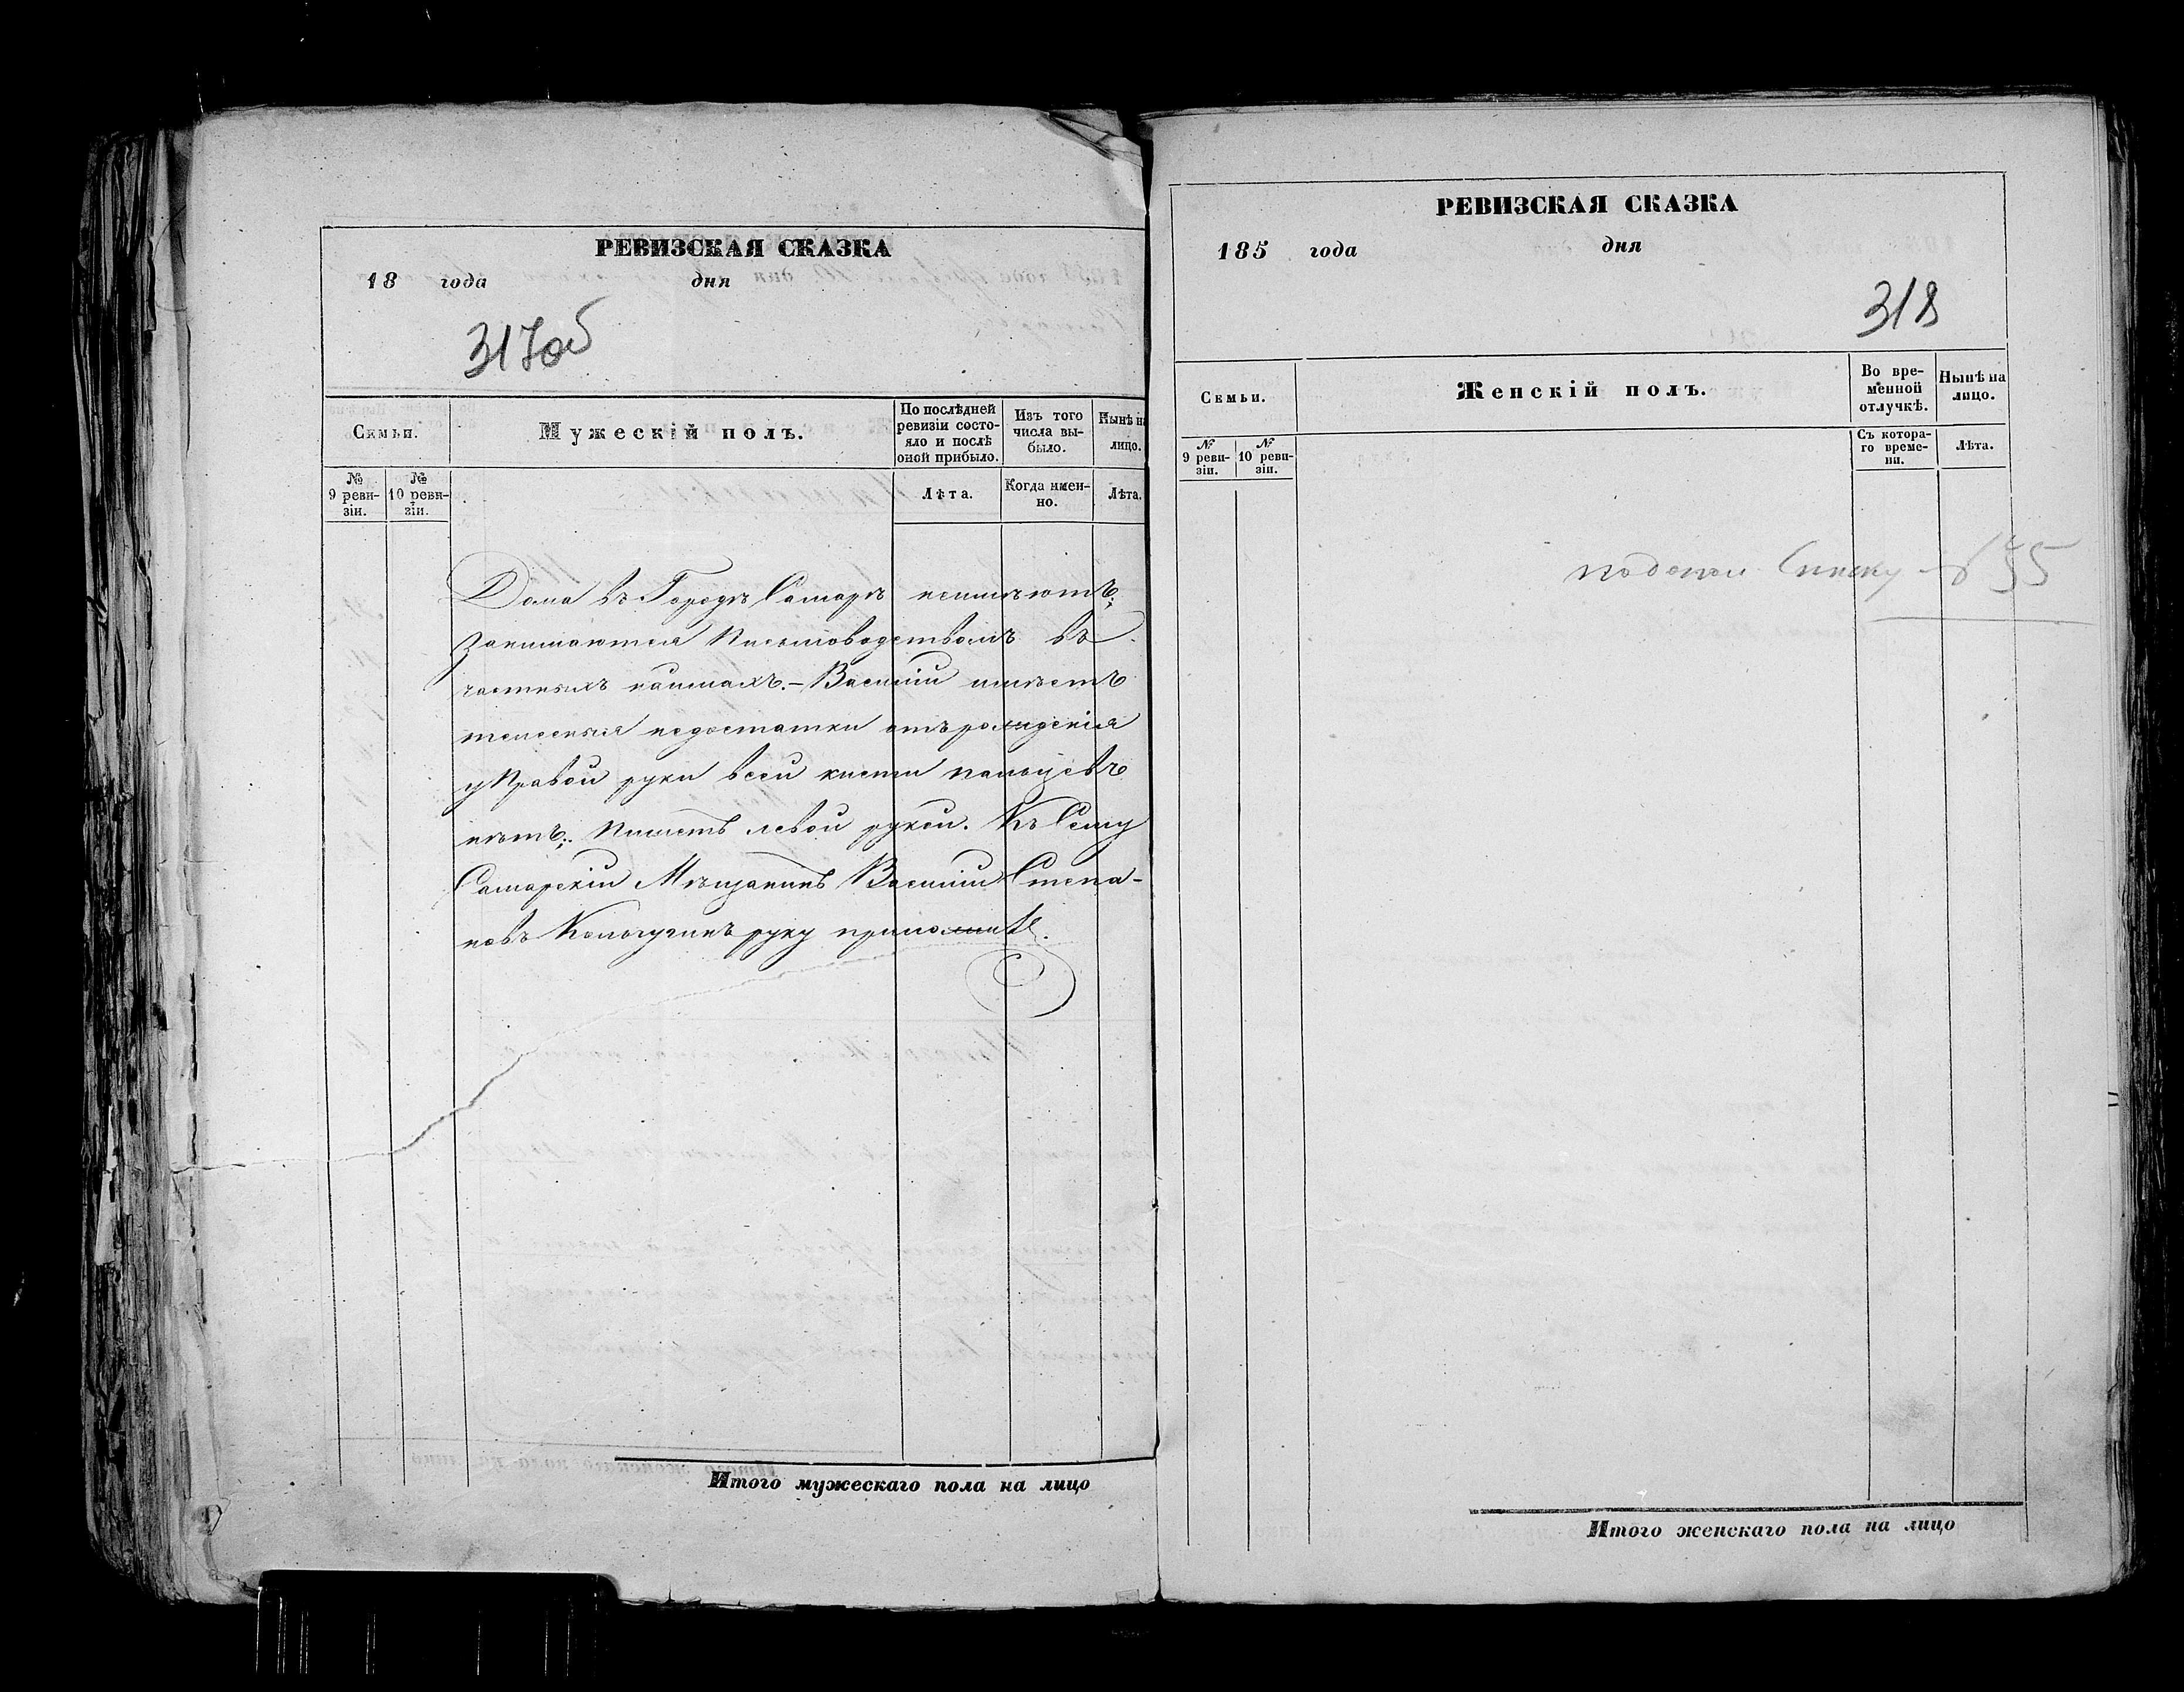 РЕВИЗСКАЯ СКАЗКА
18 года дня
317об
Семьи.
Мужескій полъ.
По послѣдней ревизіи состояло и послѣ оной прибыло.
Изъ того числа выбыло.
Нынѣ на лицо.
№ 9 ревизіи.
№ 10 ревизіи.
Лѣта.
Когда именно.
Лѣта.
Дома въ Городѣ Самарѣ неимѣютъ;
занимаются письмоводствомъ въ
частныхъ наймахъ. – Василий имѣетъ
телесныя недостатки отърождения
у Правой руки всей кисти пальцевъ
нѣтъ; пишетъ левой рукой. Къ Сему
Самарскій Мѣщанинъ Василий Степа-
новъ Кольчугинъ руку приложилъ.
Итого мужескаго пола на лицо
РЕВИЗСКАЯ СКАЗКА
185 года дня
318
Семьи.
Женскій полъ.
Во временной отлучкѣ.
Нынѣ на лицо.
№ 9 ревизіи.
№ 10 ревизіи.
Съ котораго времени.
Лѣта.
Списку
Итого женскаго пола на лицо